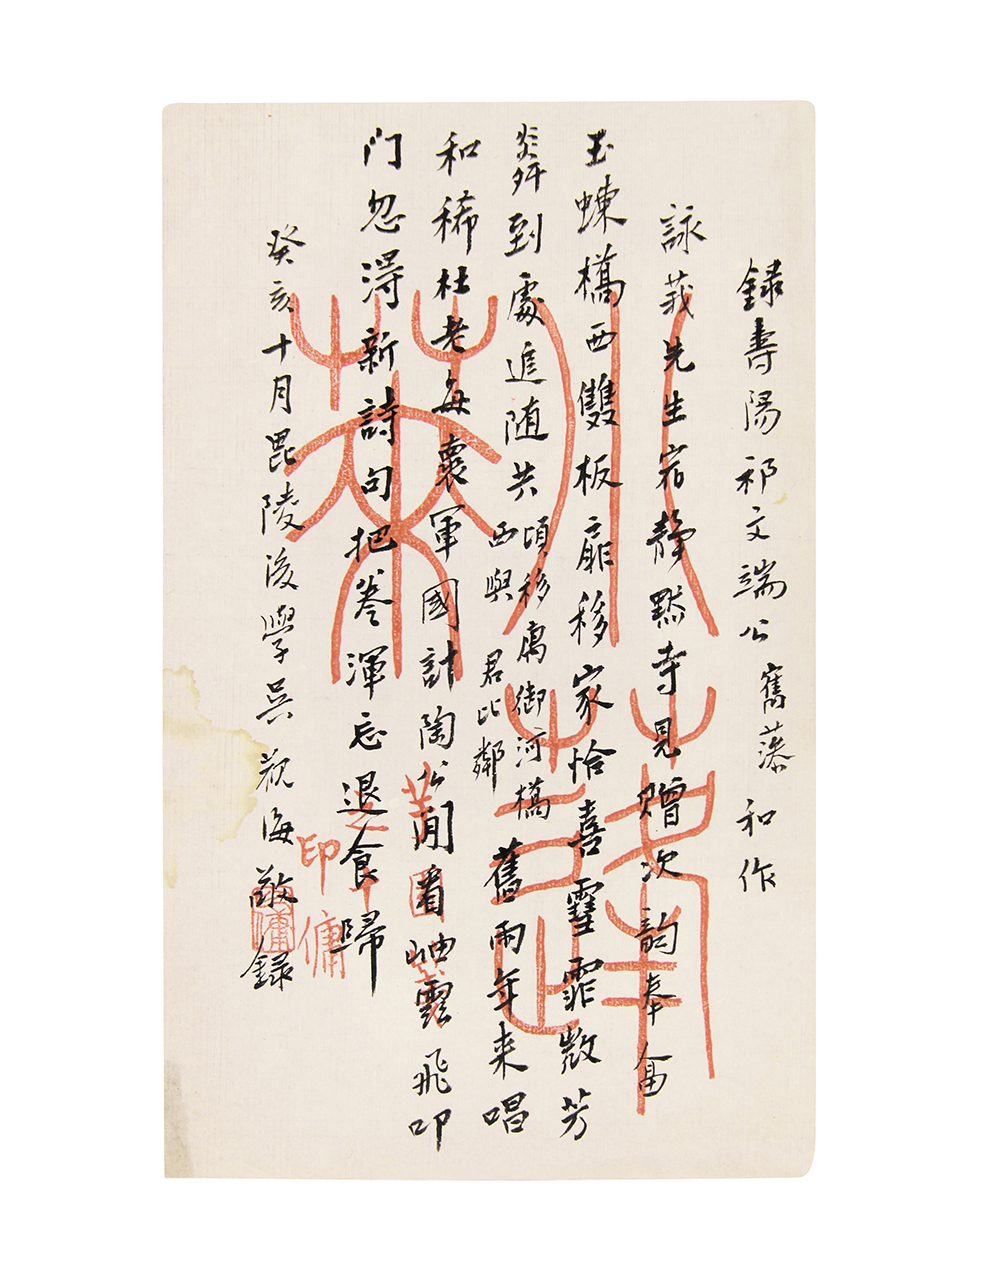 録壽陽祁文端公寯藻和作
詠莪先生宿静默寺見贈次韵奉畣
玉蝀橋西雙板扉移家恰喜霏微芳
鄰到處追随共頃移寓御河橋西與君比鄰舊雨年来唱
和稀杜老每褱軍國計陶公閒看岫雲飛叩
门忽得新詩句把卷渾忘退食歸
癸亥十月毘陵後學吳觀海敬録
印傭